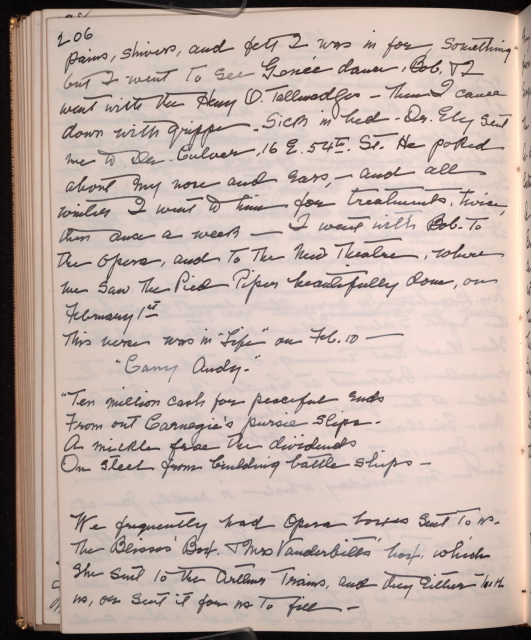 206
pains, shivers, and felt I was in for something
but I went to see Genée dance, Bob & I
went with the Henry O. Tallmadges - Then I came
down with grippe - Sick in bed - Dr. Ely sent
me to Dr. Culver, 16 E. 54th St. He poked
about my nose and ears, - and all
winter I went to him for treatments, twice,
then once a week — I went with Bob to
the opera, and to the New Theatre, where
we saw the Pied Piper beautifully done, on
February 1st
This verse was in "Life" on Feb. 10 —
"Canny Andy."
"Ten million cash for peaceful ends
From out Carnegie's pursie slips.
A mickle frae the dividends
On steel from building battle ships -
We frequently had Opera boxes sent to us.
The Blisses' Box, & Mrs Vanderbilts' box, which
she sent to the Arthur Trains, and they either with
us, or sent it for us to fill. -